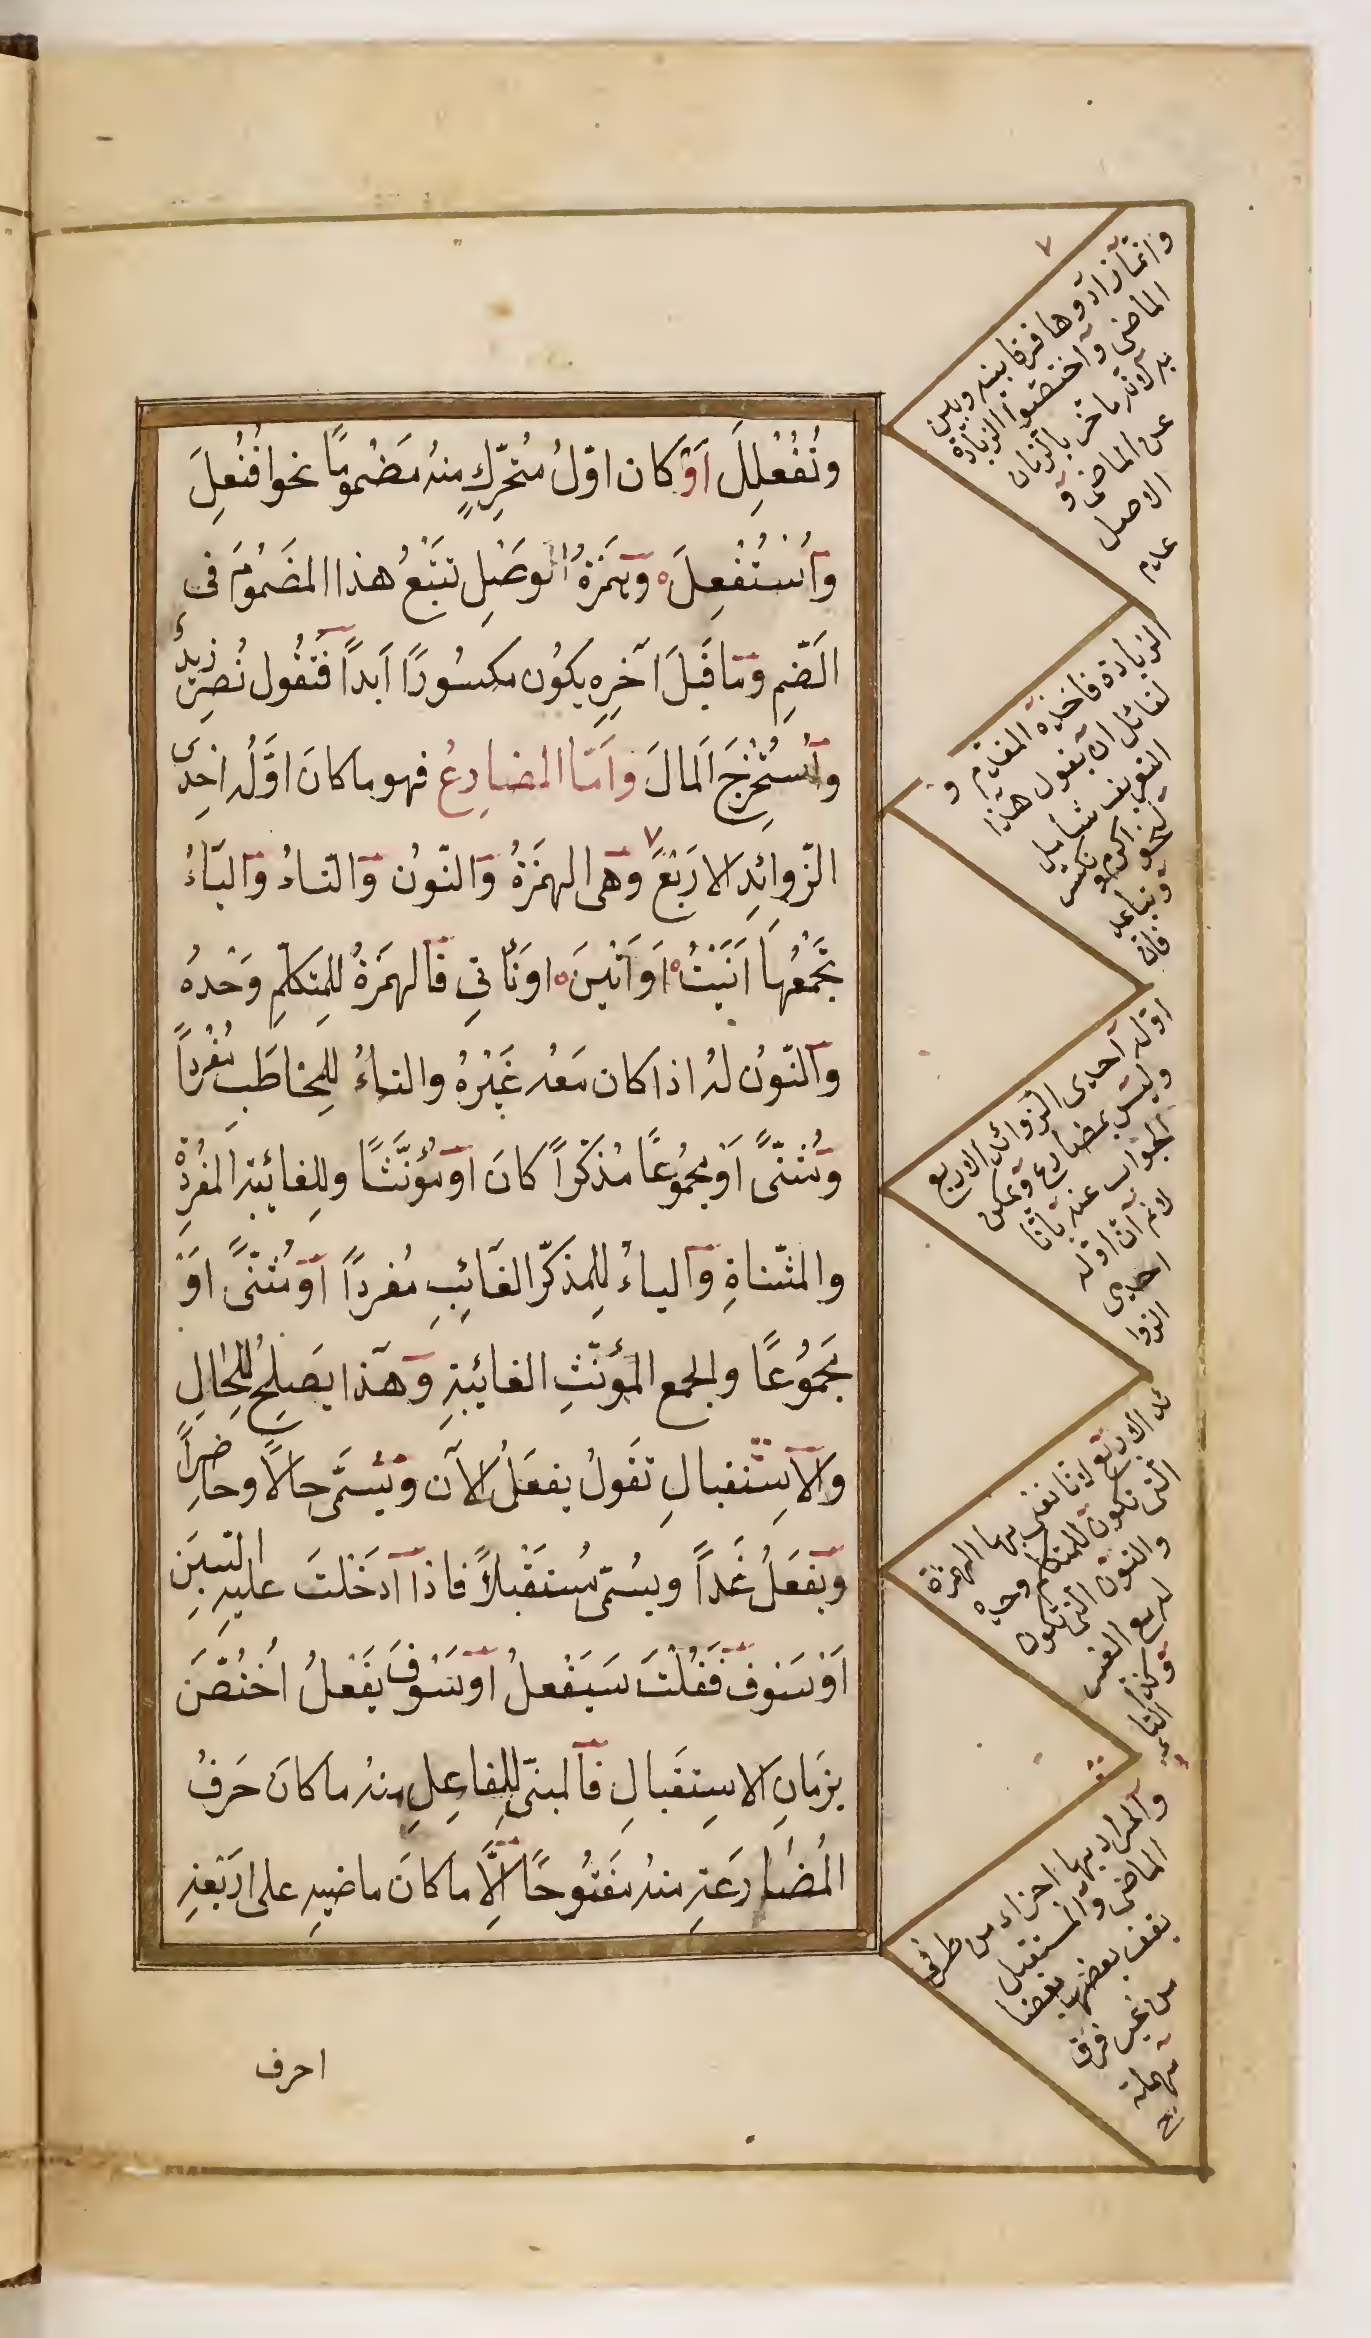 وتُفُعْلِلَ اَوْ كان اوّلُ مُتحرِّكٍ منهُ مَضْمومًا نحو اُفْتُعِلَ
وَاُسْتُفْعِلَ وَهَمْزَةُ الْوَصْلِ تَتْبَعُ هذا المضمُومَ فى
الَضّمِ وَمَا قَبلَ آخِرِهِ يكوُن مكسُورًا اَبداً فَتَقُول نُصِرَ زَيدٌ
وَاُسْتُخْرِجَ اَلمالَ وَاَمَّا المضارِعُ فهو ما كانَ اوَّلُه اِحْدَى
الزّوائِدِ الارَبْعَ وَهى الهمَزةُ وَالنّوُن وَالتاءُ وَاليَاءُ
تَجْمَعُهَا اَنَيْتُ اَوَ اَتَيْنَ اوَنَأتى فَالهمَزةُ لِلمتكلّمِ وَحْدهُ
وَالنّونُ لهُ اذا كان مَعَه غَيْرُهُ والتاءُ للِمخاطَبِ مُفْرداً
وَمُثنّىً اَوْ مجمُوعًا مُذكّراً كانَ اَوْ مُؤنّثًا وللِغائبَةِ المفُردْةِ
والمثنّاةِ وَالياءُ للِمذكّر الغَائِبِ مُفرداً اَوْ مُثنّىً اَوْ
مَجموُعًا ولجمع المؤنّثِ الغايَبةِ وَهَذا يَصلِحُ لِلحْالِ
والاَسِتقبالِ تقَولُ يفعَلُ الآن وَيُسَمّى حالاً وحاضِراً
وَيَفعَلُ غَداً ويسُمّى مُستَقْبلاً فاذا اَدخَلتَ عليهِ السّينَ
اَوْ سَوفَ فَقُلْتَ سَيَفْعلُ اَوْ سَوْفَ يَفَعلُ اخُتُصَّ
بزمَانِ الاسِتقَبالِ فَالمبنىّ للفاعِلِ منهُ ما كانَ حَرفُ
المُضارَعَةِ منهُ مَفتوُحًا اِلّا ما كانَ ماضيهِ على ارَبْعَةِ
احرف
وانّما زادوها فرقا بينه وبين
الماضى واختصّوا الزيادة
به لانّه مؤخّر بالزمان
عن الماضى و
الاصل
عدم
الزيادة فاخذه المقدّم و
لقائل ان يقول هذا
التعريف شامل
لنحو اكرم وتكسّر
وتباعد
فانّ
اوّله احدى الزوائد الاربع
وليس بمضارع ويمكن
الجواب عنه بانّا
لا نم انّ اوّله
احدى
الزوا
ئد الاربع لانّا نعنى بها الهمزة
التى تكون للمتكلم وحده
والنون التى تكون
له مع الغير
وكذلك
والمراد بها اجزاء من طرفى
الماضى والمستقبل
يعقب بعضها بعضا
من غير فرق
مهلة